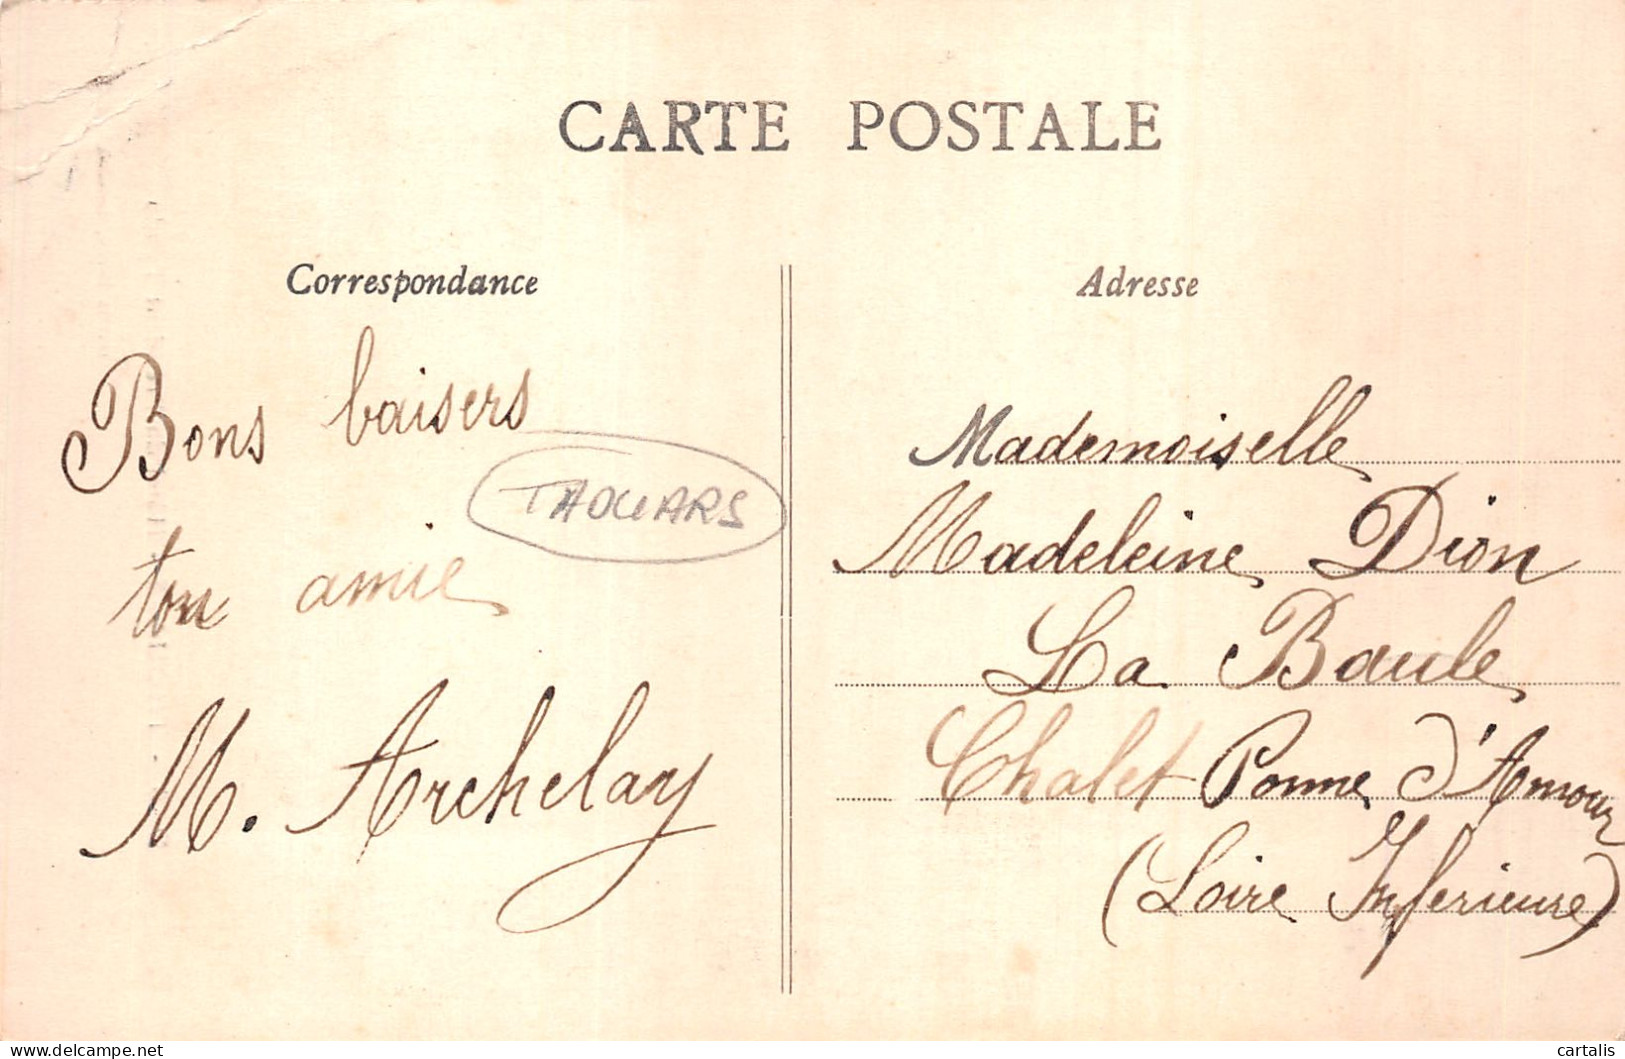 CARTE POSTALE
Correspondance
Bons baisers
THOUARS
ton amie
M. Archelay
Adresse
Mademoiselle
Madeleine Dion
La Baule
Chalet Pomme d'Amour
(Loire Inferieure)
delcampe.net
cartalis